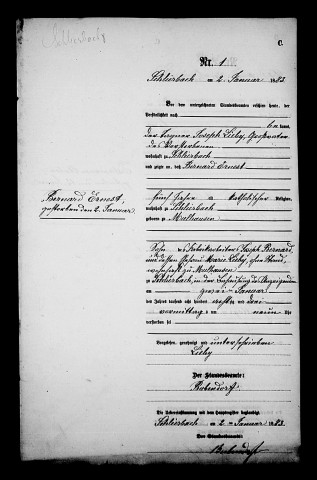 Schlierbach
C.
Nr. 1
Schlierbach am 2. Januar 1883
Vor dem unterzeichneten Standesbeamten erschien heute, der
Persönlichkeit nach
bekannt,
der Joseph Lieby,
wohnhaft zu Schlierbach
und zeigte an, daß Bernard Ernest
Bernard Ernest,
gestorben den 2. Januar.
fünf Jahre alt, katholischer Religion,
wohnhaft zu Schlierbach
geboren zu Mülhausen
Sohn des Fabrikarbeiters Joseph Bernard
und dessen Ehefrau Marie Lieby, ohne Stand,
wohnhaft zu Mülhausen
zu Schlierbach, in der Behausung des Anzeigenden
am zwei- Januar
des Jahres tausend acht hundert achtzig und drei
Vormittags um neun Uhr
verstorben sei.
Vorgelesen, genehmigt und unterschrieben
Lieby
Der Standesbeamte:
Bubendorf
Die Uebereinstimmung mit dem Hauptregister beglaubigt
Schlierbach am 2. Januar 1883
Der Standesbeamte.
Bubendorf